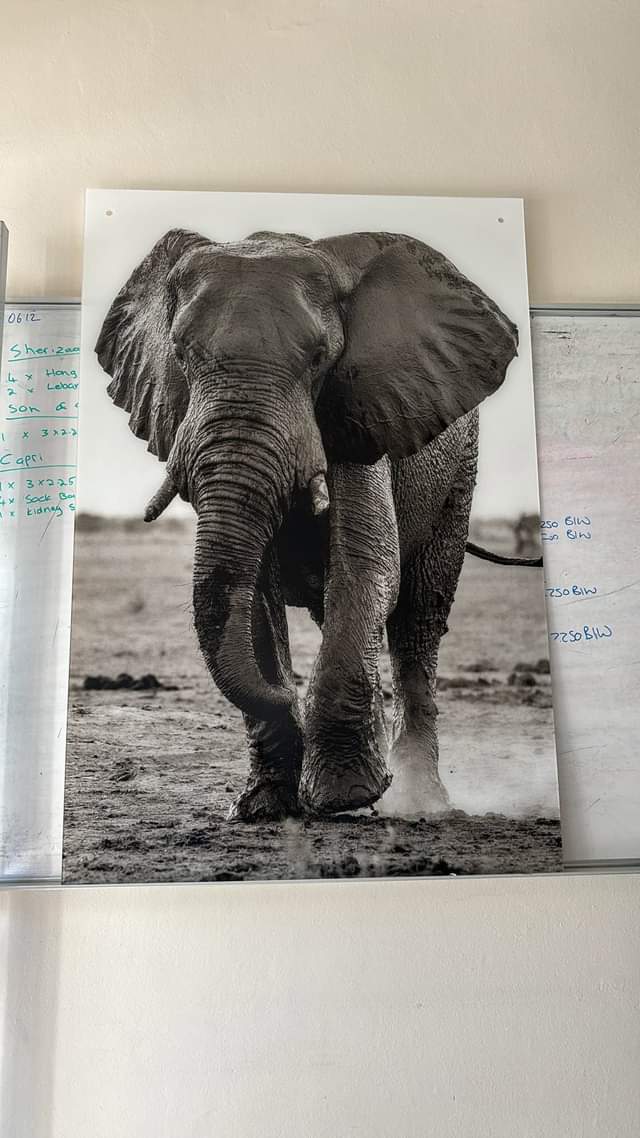 06.12
Sherizaa
4 x Hong
2 x Lebar
Son &
1 x 3x2.2
Capri
1 x 3x2.25
4x Sock Ba
1 x Kidney S
250 B/W
250 B/W
2250 B/W